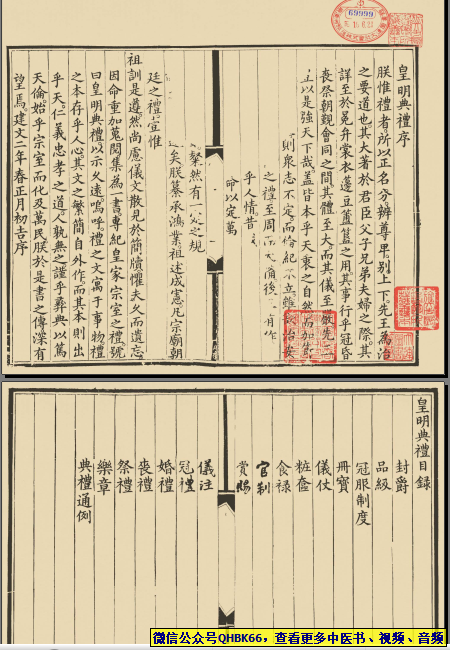 皇明典禮序
朕惟禮者所以正名分辨尊卑別上下先王為治
之要道也其大著於君臣父子兄弟夫婦之際其
詳至於冕弁裳衣籩豆簠簋之用其事行乎冠昏
喪祭朝覲會同之間其體至大而其儀至嚴先
以是強天下哉蓋皆本乎天衷之自然而加
則衆志不定而倫紀不立雖 治安
之禮至周而大備後 有作
乎人情昔
命以定萬
粲然有一定之規
矣朕纂承鴻業祖述成憲凡宗廟朝
廷之禮 惟
祖訓是遵然尚慮儀文散見於簡牘懼夫久而遺忘
因命重加蒐閱集為一書專紀皇家宗室之禮號
曰皇明典禮以示久遠嗚呼禮之文寓于事物禮
之本存乎人心其文之繁簡自外作而其本則出
乎天仁義忠孝之道人孰無之謹乎彝典以篤
天倫始乎宗室而化及萬民朕於是書之傳深有
望焉建文二年春正月初吉序
69999
皇明典禮目録
封爵
品級
冠服制度
冊寶
儀仗
粧奩
食祿
官制
賞賜
儀注
冠禮
婚禮
喪禮
祭禮
樂章
典禮通例
微信公众号QHBK66，查看更多中医书、视频、音频